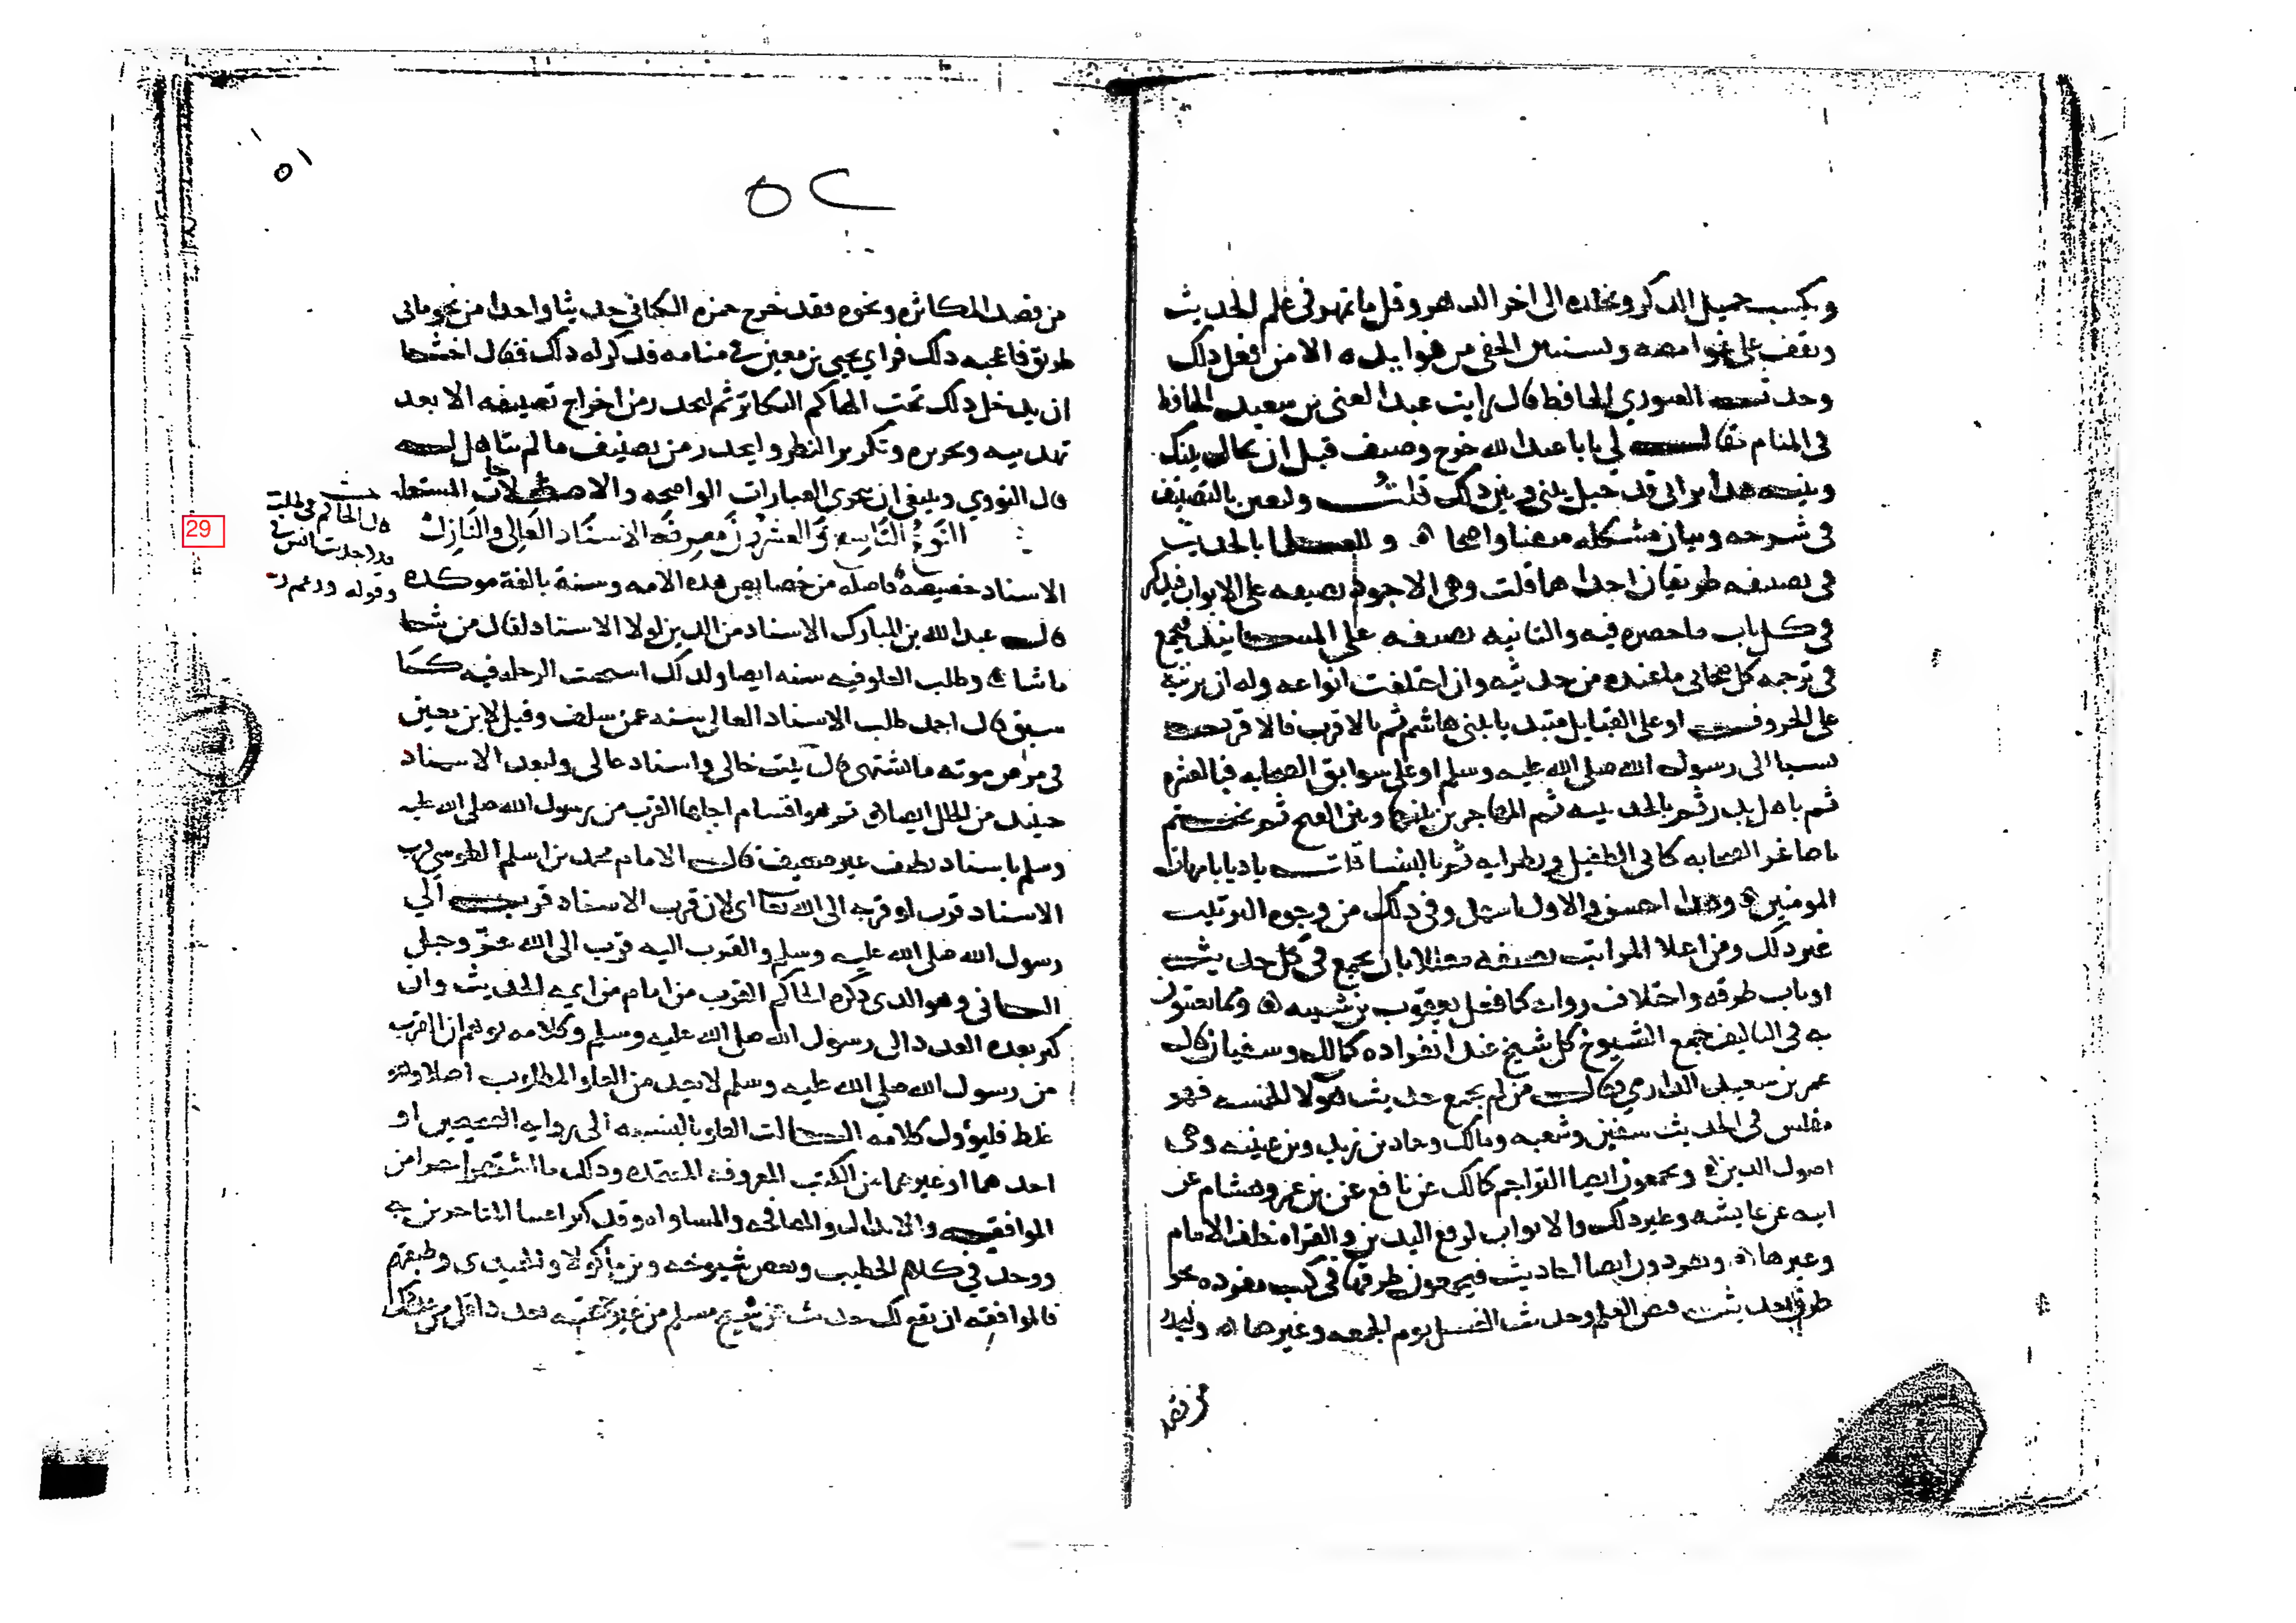 ويكسب جميل الذكر وتخلده الى اخر الدهر وقل ما تمهر في علم الحديث
ويقف على غوامضه ويستبين الخفي من فوايده الا من فعل ذلك
وحدث الصوري الحافظ قال رايت عبد الغني بن سعيد الحافظ
في المنام فقال لي يابا عبد الله خرج وصنف قبل ان يحال بينك
وبينه هذا تراني قد حيل بيني وبين ذلك قلت وليعن بالتصنيف
في شرحه وبيان مشكله متقنا واضحا ه وللعلما بالحديث
في تصنيفه طريقان احداهما قلت وهي الاجود تصنيفه على الابواب فيذكر
في كل باب ما حضره فيه والثانيه تصنيفه على المسانيد فيجمع
في ترجمه كل صحابي ما عنده من حديثه وان اختلفت انواعه وله ان يرتبه
على الحروف او على القبايل فيبتدي ببني هاشم ثم بالاقرب فالاقرب
نسبا الى رسول الله صلى الله عليه وسلم او على سوابق الصحابه فبالعشره
ثم باهل بدر ثم بالحديبيه ثم المهاجرين بينها وبين الفتح ثم يختم
باصاغر الصحابه كابي الطفيل ونظرايه ثم بالنسا قلت باديا بامهات
المومنين ه وهذا احسن والاول اسهل وفي ذلك من وجوه الترتيب
غير ذلك ومن اعلا المراتب تصنيفه معللا بان يجمع في كل حديث
او باب طرقه واختلاف رواته كما فعل يعقوب بن شيبه ه ومما يعتنون
به في التاليف جمع الشيوخ كل شيخ عند انفراده كمالك وسفيان قال
عمر بن سعيد الدارمي يقال من لم يجمع حديث هولا الخمسه فهو
مفلس في الحديث سفين وشعبه ومالك وحماد بن زيد وبن عيينه وهم
اصول الدين ه ويجمعون ايضا التراجم كمالك عن نافع عن بن عمر وهشام عن
ابيه عن عايشه وغير ذلك والابواب كرفع اليدين والقراه خلف الامام
وغيرها ه ويفردون ايضا احاديث فيجمعون طرقها في كتب مفرده نحو
طرق حديث قبض العلم وحديث الغسل يوم الجمعه وغيرها ه وليحذر
من قصد
٥٢
٥١
من قصد المكاثره ونحوه فقد خرج حمزه الكناني حديثا واحدا من نحو مايتي
طريق فاعجبه ذلك فراي يحيى بن معين في منامه فذكر له ذلك فقال اخشى
ان يدخل ذلك تحت الهاكم التكاثر ثم ليحذر من اخراج تصنيفه الا بعد
تهذيبه وتحريره وتكرير النظر وليحذر من تصنيف ما لم يتاهل له
قال النووي وينبغي ان يتحرى العبارات الواضحه والاصطلاحات المستعمله
النوع التاسع والعشرون معرفة الاسناد العالي والنازل
29
الاسناد خصيصة فاضله من خصايص هذه الامه وسنة بالغة موكده
قال عبد الله بن المبارك الاسناد من الدين لولا الاسناد لقال من شا
ما شا ه وطلب العلو فيه سنه ايضا ولذلك استحبت الرحله فيه كما
سبق قال احمد طلب الاسناد العالي سنه عمن سلف وقيل لابن معين
في مرض موته ما تشتهي قال بيت خالي واسناد عالي ولبعد الاسناد
حينيذ من الخلل ايضا ه ثم هو اقسام اجلها القرب من رسول الله صلى الله عليه
وسلم باسناد نظيف غير ضعيف قال الامام محمد بن اسلم الطوسي قرب
الاسناد قرب او قربه الى الله تعالى اي لان قرب الاسناد قرب الي
رسول الله صلى الله عليه وسلم والقرب اليه قرب الى الله عز وجل
الثاني وهو الذي ذكره الحاكم القرب من امام من ايمه الحديث وان
كثر بعده العدد الى رسول الله صلى الله عليه وسلم وكلامه يوهم ان القرب
من رسول الله صلى الله عليه وسلم لا يعد من العلو المطلوب اصلا وهو
غلط فليؤول كلامه الثالث العلو بالنسبه الى روايه الصحيحين او
احدهما او غيرهما من الكتب المعروفه المعتمده وذلك ما اشتهر اخرا من
الموافقه والابدال والمصافحه والمساواه وقد كثر اعتنا المتاخرين به
ووجد في كلام الخطيب وبعض شيوخه وبن ماكولا والحميدي وطبقتهم
فالموافقه ان يقع لك حديث عن شيخ مسلم من غير جهته بعدد اقل من عددك
قال الحاكم وفي طلبه